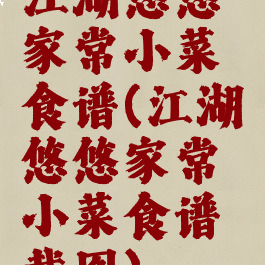 江湖悠悠
家常小菜
食谱(江湖
悠悠家常
小菜食谱
截图)